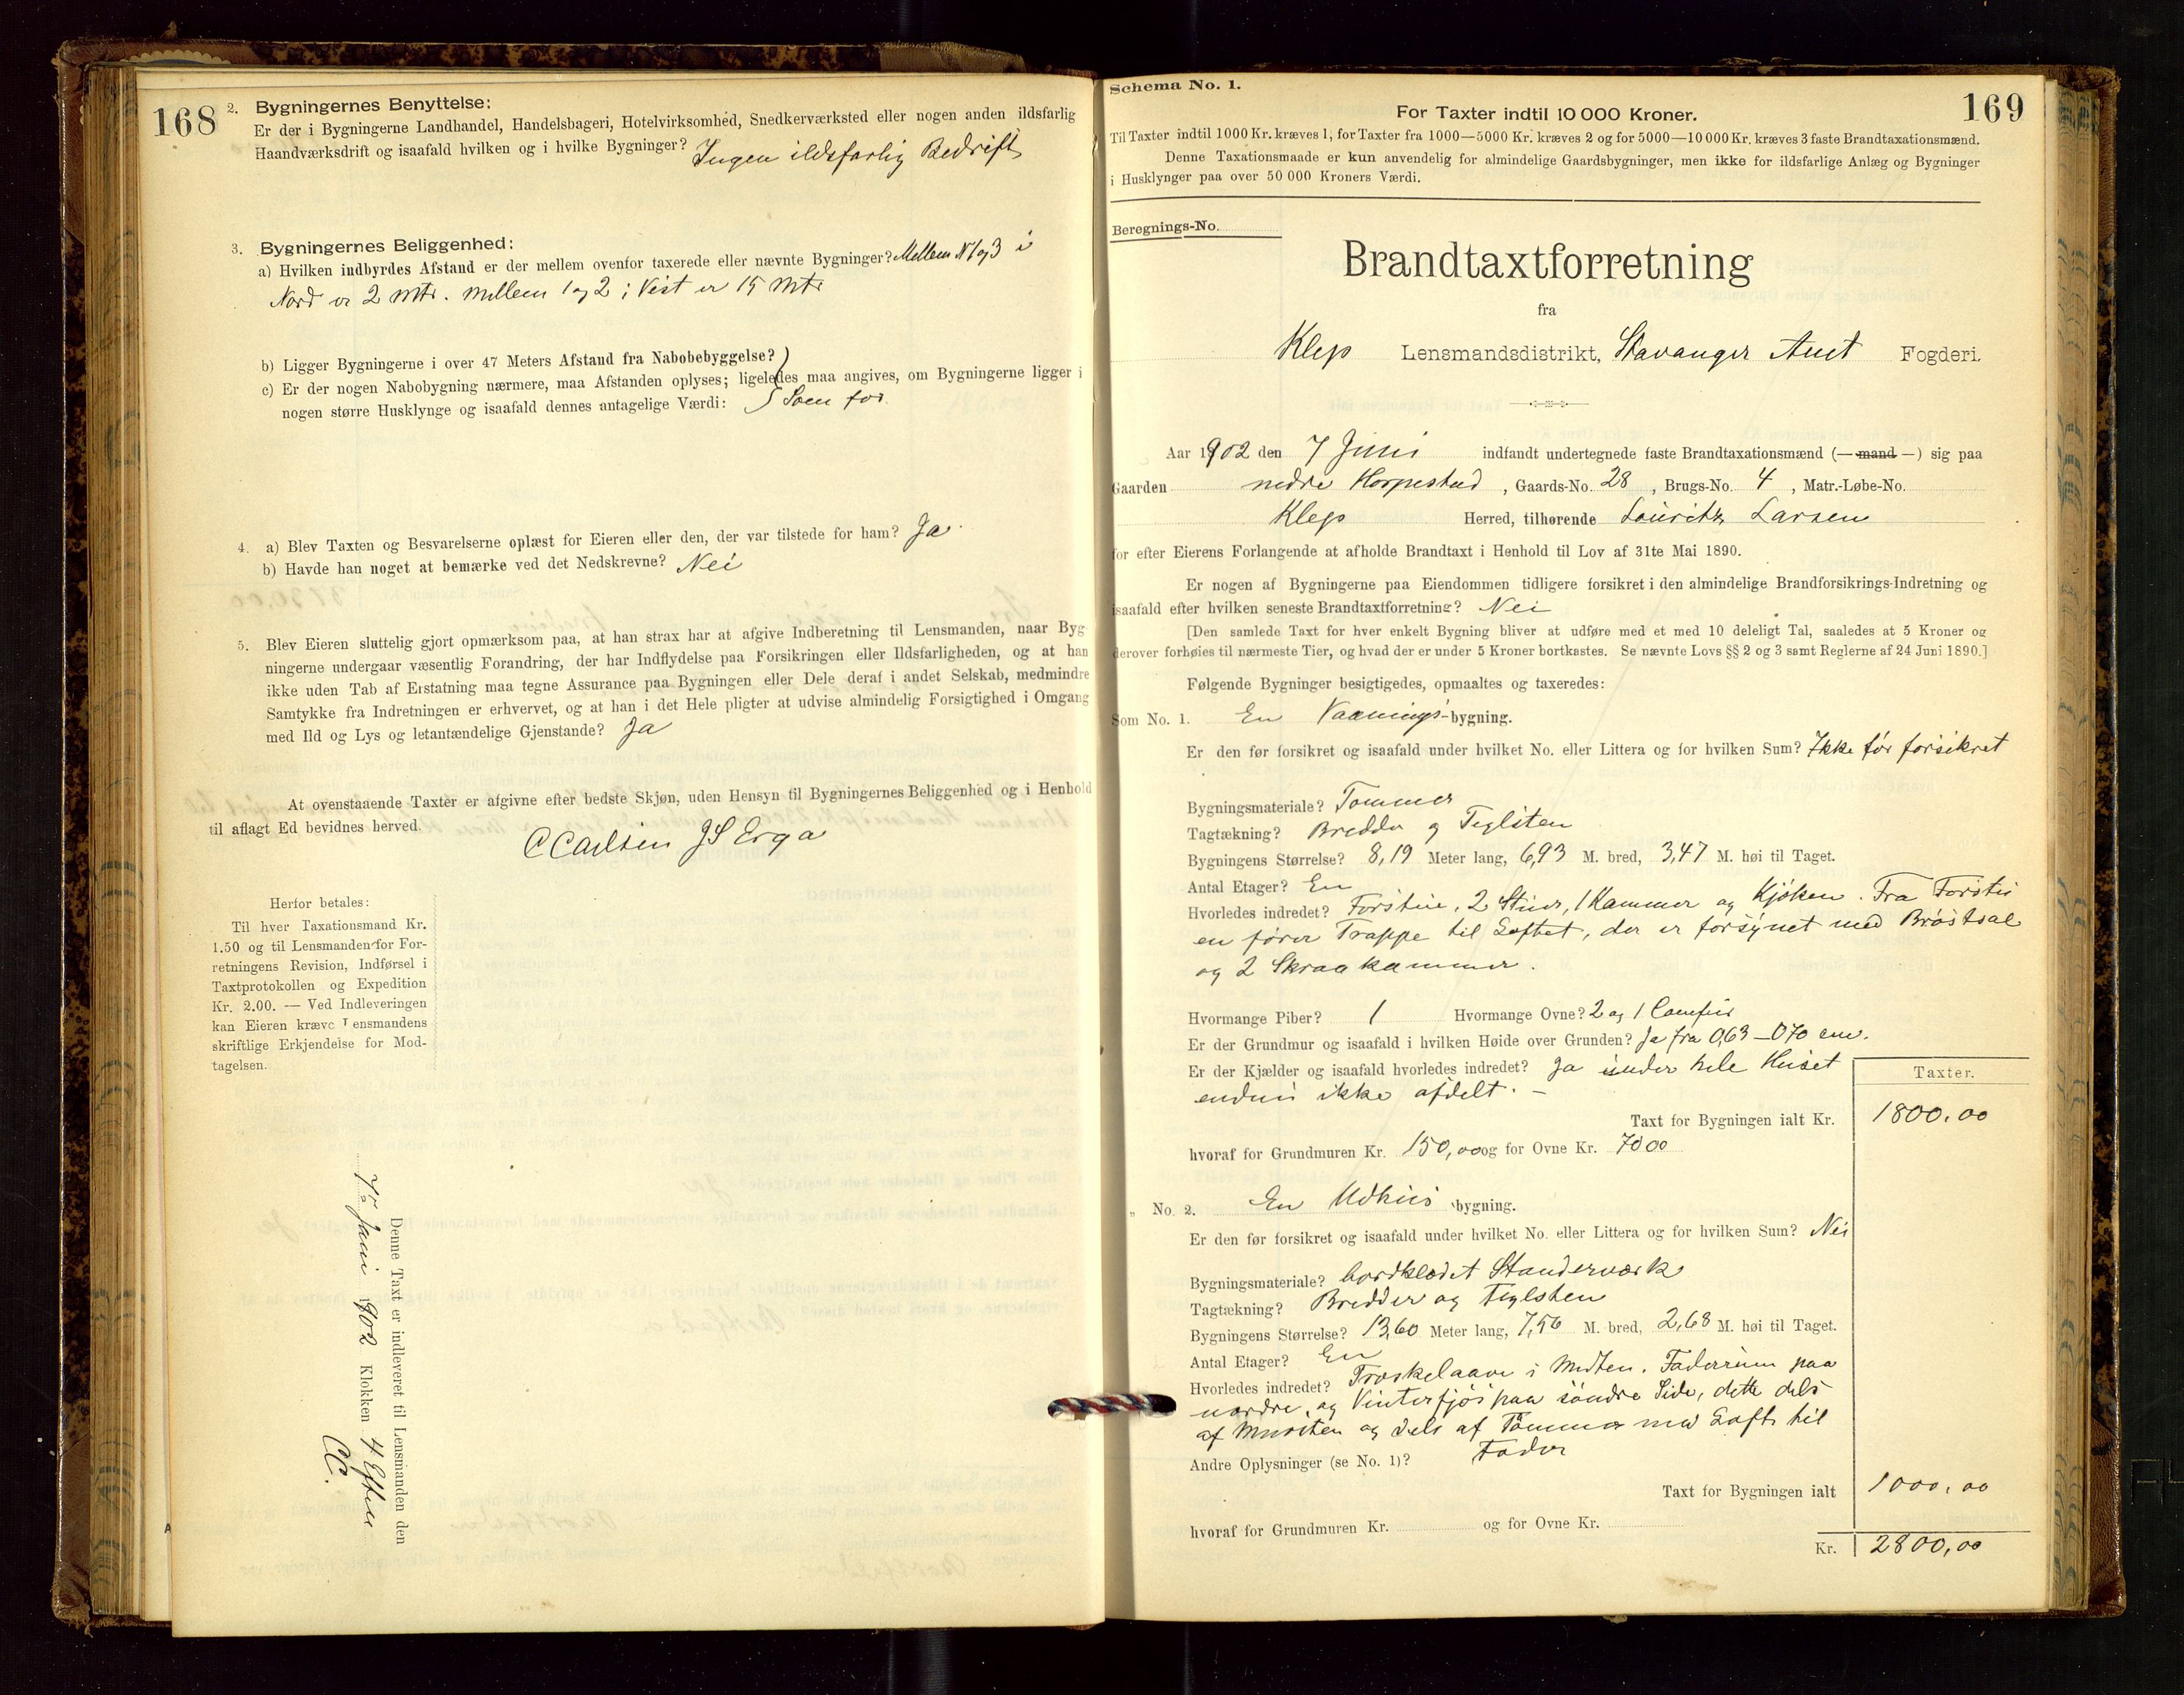 168
2. Bygningernes Benyttelse:
Er der i Bygningerne Landhandel, Handelsbageri, Hotelvirksomhed, Snedkerværksted eller nogen anden ildsfarlig
Haandværksdrift og isaafald hvilken og i hvilke Bygninger? Ingen ildsfarlig Bedrift
3. Bygningernes Beliggenhed:
a) Hvilken indbyrdes Afstand er der mellem ovenfor taxerede eller nævnte Bygninger? Mellem N 1 og 3 i
Nord er 2 Mtr. mellem 1 og 2 i Vest er 15 Mtr
b) Ligger Bygningerne i over 47 Meters Afstand fra Nabobebyggelse?
c) Er der nogen Nabobygning nærmere, maa Afstanden oplyses; ligeledes maa angives, om Bygningerne ligger i
nogen større Husklynge og isaafald dennes antagelige Værdi: Som før
4. a) Blev Taxten og Besvarelserne oplæst for Eieren eller den, der var tilstede for ham? Ja
b) Havde han noget at bemærke ved det Nedskrevne? Nei
5. Blev Eieren sluttelig gjort opmærksom paa, at han strax har at afgive Indberetning til Lensmanden, naar Byg-
ningerne undergaar væsentlig Forandring, der har Indflydelse paa Forsikringen eller Ildsfarligheden, og at han
ikke uden Tab af Erstatning maa tegne Assurance paa Bygningen eller Dele deraf i andet Selskab, medmindre
Samtykke fra Indretningen er erhvervet, og at han i det Hele pligter at udvise almindelig Forsigtighed i Omgang
med Ild og Lys og letantændelige Gjenstande? Ja
At ovenstaaende Taxter er afgivne efter bedste Skjøn, uden Hensyn til Bygningernes Beliggenhed og i Henhold
til aflagt Ed bevidnes herved.
C Carlsen J S Erga
Herfor betales:
Til hver Taxationsmand Kr.
1.50 og til Lensmanden for For-
retningens Revision, Indførsel i
Taxtprotokollen og Expedition
Kr. 2.00. — Ved Indleveringen
kan Eieren kræve Lensmandens
skriftlige Erkjendelse for Mod-
tagelsen.
Denne Taxt er indleveret til Lensmanden den
7 Juni 1902 Klokken 4 Efterm
CC.
Schema No. 1.
169
For Taxter indtil 10 000 Kroner.
Til Taxter indtil 1000 Kr. kræves 1, for Taxter fra 1000—5000 Kr. kræves 2 og for 5000—10 000 Kr. kræves 3 faste Brandtaxationsmænd.
Denne Taxationsmaade er kun anvendelig for almindelige Gaardsbygninger, men ikke for ildsfarlige Anlæg og Bygninger
i Husklynger paa over 50 000 Kroners Værdi.
Beregnings-No.
Brandtaxtforretning
fra
Klep Lensmandsdistrikt, Stavanger Amt Fogderi.
Aar 1902 den 7 Juni indfandt undertegnede faste Brandtaxationsmænd (— mand —) sig paa
Gaarden nedre Horpestad, Gaards-No. 28, Brugs-No. 4, Matr.-Løbe-No.
Klep Herred, tilhørende Louritz Larsen
for efter Eierens Forlangende at afholde Brandtaxt i Henhold til Lov af 31te Mai 1890.
Er nogen af Bygningerne paa Eiendommen tidligere forsikret i den almindelige Brandforsikrings-Indretning og
isaafald efter hvilken seneste Brandtaxtforretning? Nei
[Den samlede Taxt for hver enkelt Bygning bliver at udføre med et med 10 deleligt Tal, saaledes at 5 Kroner og
derover forhøies til nærmeste Tier, og hvad der er under 5 Kroner bortkastes. Se nævnte Lovs §§ 2 og 3 samt Reglerne af 24 Juni 1890.]
Følgende Bygninger besigtigedes, opmaaltes og taxeredes:
Som No. 1. En Vaanings-bygning.
Er den før forsikret og isaafald under hvilket No. eller Littera og for hvilken Sum? Ikke før forsikret
Bygningsmateriale? Tømmer
Tagtækning? Bredder og Teglsten
Bygningens Størrelse? 8,19 Meter lang, 6,93 M. bred, 3,47 M. høi til Taget.
Antal Etager? En
Hvorledes indredet? Forstue, 2 Stuer, 1 Kammer og Kjøken. Fra Forstu
en fører Trappe til Loftet, der er forsynet med Brøstsal
og 2 Skraakammer.
Hvormange Piber? 1 Hvormange Ovne? 2 og 1 Comfur
Er der Grundmur og isaafald i hvilken Høide over Grunden? Ja fra 0,63—070 cm.
Er der Kjælder og isaafald hvorledes indredet? Ja under hele Huset
endnu ikke afdelt. —
Taxter.
Taxt for Bygningen ialt Kr. 1800,00
hvoraf for Grundmuren Kr. 150,00 og for Ovne Kr. 7000
" No. 2. En Udhus bygning.
Er den før forsikret og isaafald under hvilket No. eller Littera og for hvilken Sum? Nei
Bygningsmateriale? bordklædet Standerværk
Tagtækning? Bredder og Teglsten
Bygningens Størrelse? 13,60 Meter lang, 7,56 M. bred, 2,68 M. høi til Taget.
Antal Etager? En
Hvorledes indredet? Træskelaave i Midten. Foderrum paa
nordre, og Vinterfjøs paa søndre Side, dette dels
af Mursten og dels af Tømmer med Loft til
Andre Oplysninger (se No. 1)? Foder
Taxt for Bygningen ialt 1000,00
hvoraf for Grundmuren Kr. og for Ovne Kr.
Kr. 2800,00